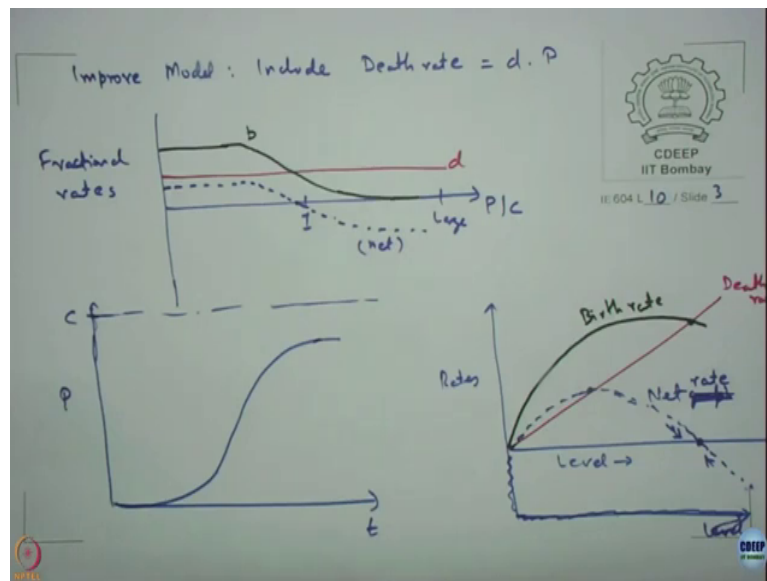 Improve Model: Include Death rate = d.P
CDEEP
IIT Bombay
IE 604 L 10 / Slide 3
Fractional
rates
b
d
P/C
1
Large
(net)
C
P
t
Death
Birth rate
Rates
Net rate
Level →
Level
NPTEL
CDEEP
IIT BOMBAY